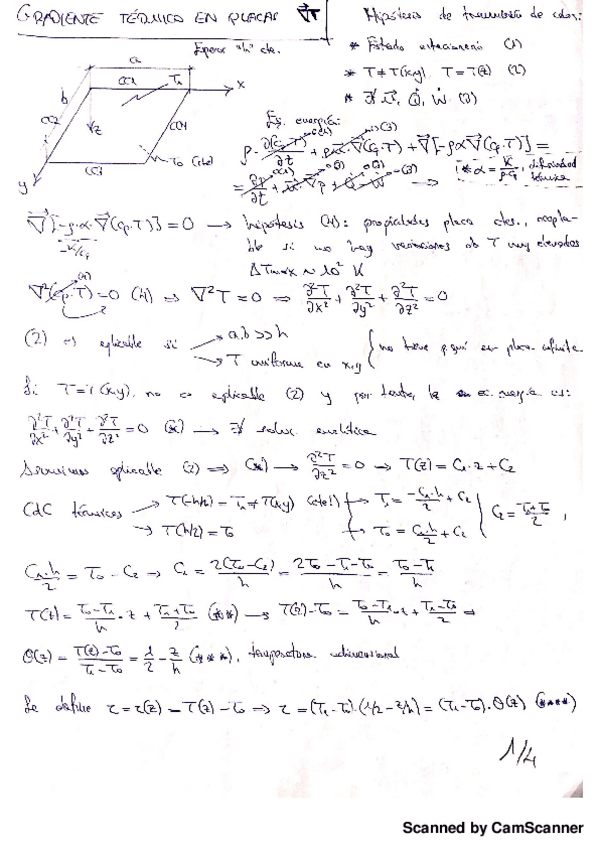 GRADIENTE TÉRMICO EN PLACAS ∇T
Hipótesis de transmisión de calor:
Espesor "h" cte.
* Estado estacionario (1)
* T ≠ T(x,y), T = T(z) (2)
* ∄ u, Q, W (3)
a
CC1
T₁
x
b
CC2
z
CC4
T₀ (cte)
CC3
y
Ec. energía:
ρ·∂(Cp·T)/∂t + ρ·u·∇(Cp·T) + ∇[-ρ·α·∇(Cp·T)] =
= ∂p/∂t + u·∇p + Q + W
* α = K/ρ·Cp, difusividad térmica
∇[-ρ·α·∇(Cp·T)] = 0 → hipótesis (4): propiedades placa ctes.,
-K/Cp
ble si no hay variaciones de T muy elevadas
ΔTmax ~ 10² K
∇²(Cp·T) = 0 (4) ⇒ ∇²T = 0 ⇒ ∂²T/∂x² + ∂²T/∂y² + ∂²T/∂z² = 0
(2) es aplicable si → a,b >> h
→ T uniforme en x,y
no tiene xq ser placa infinita
Si T = T(x,y), no es aplicable (2) y por tanto, la ec. energía es:
∂²T/∂x² + ∂²T/∂y² + ∂²T/∂z² = 0 (*) → ∄ soluc. analítica
aplicable (2) ⇒ (*) → ∂²T/∂z² = 0 → T(z) = C₁·z + C₂
CdC térmicas → T(-h/2) = T₁ ≠ T(x,y) (cte!) → T₁ = -C₁·h/2 + C₂
→ T(h/2) = T₀ → T₀ = C₁·h/2 + C₂
C₂ = T₁+T₀/2,
C₁·h/2 = T₀ - C₂ → C₁ = 2(T₀-C₂)/h = 2T₀-T₁-T₀/h = T₀-T₁/h
T(z) = T₀-T₁/h · z + T₁+T₀/2 (**) → T(z)-T₀ = T₀-T₁/h · z + T₁-T₀/2 ⇒
Θ(z) = T(z)-T₀/T₁-T₀ = 1/2 - z/h (***), temperatura adimensional
Se define τ = τ(z) = T(z) - T₀ ⇒ τ = (T₁-T₀)·(1/2 - z/h) = (T₁-T₀)·Θ(z) (****)
1/4
Scanned by CamScanner